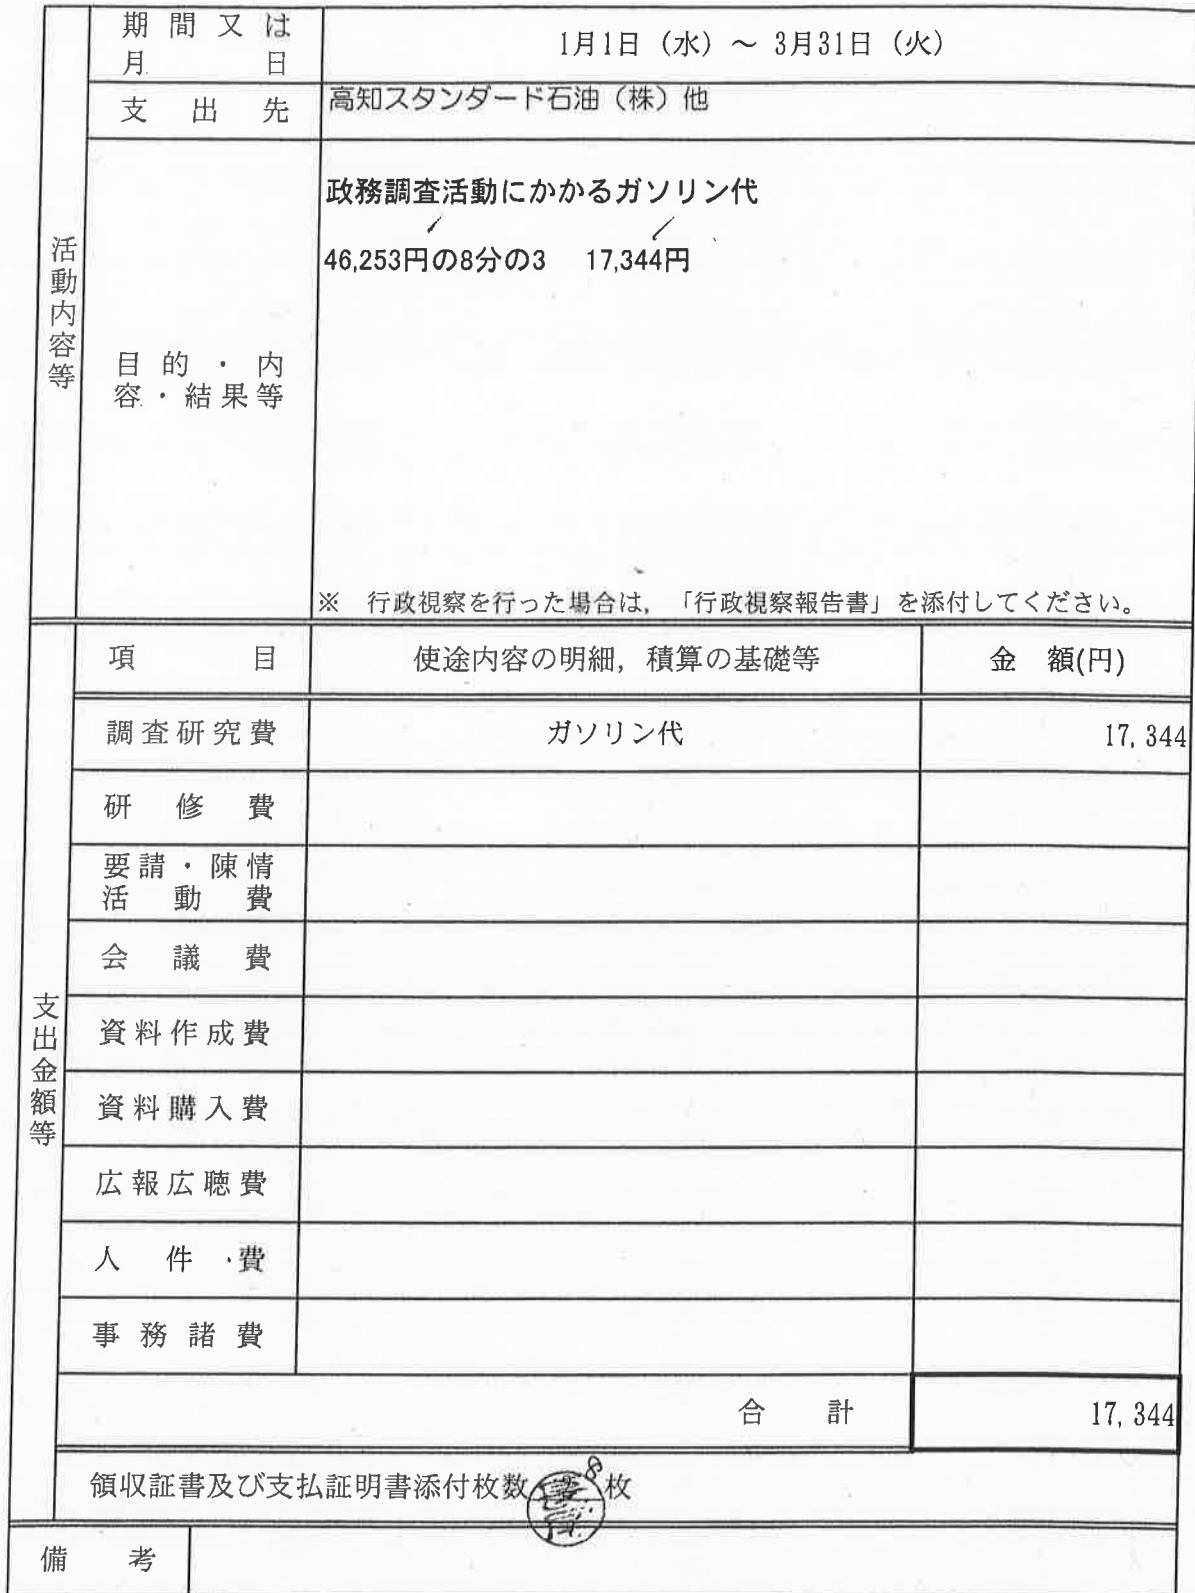 期間又は
月日
1月1日（水）～ 3月31日（火）
支出先
高知スタンダード石油（株）他
活動内容等
目的・内
容・結果等
政務調査活動にかかるガソリン代
46,253円の8分の3　17,344円
※　行政視察を行った場合は，「行政視察報告書」を添付してください。
支出金額等
項目
使途内容の明細，積算の基礎等
金　額(円)
調査研究費
ガソリン代
17,344
研修費
要請・陳情
活動費
会議費
資料作成費
資料購入費
広報広聴費
人件費
事務諸費
合計
17,344
領収証書及び支払証明書添付枚数 8 枚
備考